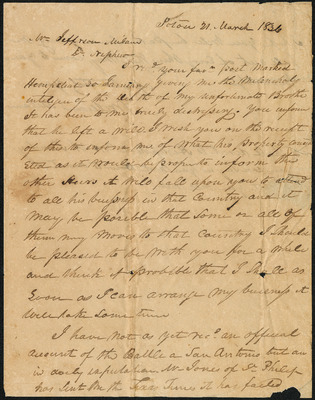 21 March 1836
Mr Jefferson Milam
Dr Nephew
I recd your favr Post Marked
30 January giving me the Melancholy
intelgen of the death of my unfortunate Brother
It has been to me truly distressing. You inform
that he left a Will I wish you on the receipt
of this to inform me of What his property consists
Etc as it Would be proper to inform the
other Heirs it Will fall upon you to attend
to all his business in that Country and it
May be possible that some or all of
them may Move to that Country I should
be pleased to be With you for a While
and think it probible that I shall as
soon as I can arrange my business it
Will take some time
I have not as yet recd an official
account of the Battle a San Antonio but am
in daily expectation Mr Jones of St Philip
has sent Me the